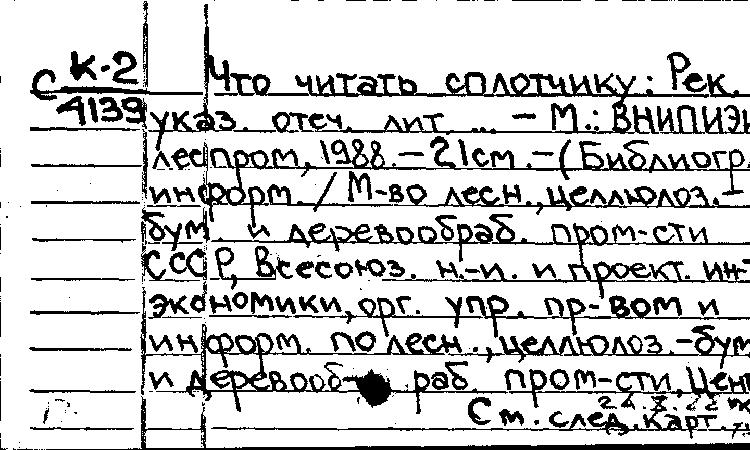 К-2 Что читать сплотчику: Рек.
С 4139 указ. отеч. лит ... - М.: ВНИПИЭИ
леспром, 1988. - 21 см. - (Библиогр.
информ. / М-во лесн., целлюлоз.-
бум. и деревообраб. пром-сти
СССР, Всесоюз. н.-и. и проект. ин-т
экономики, орг. упр. пр-вом и
информ. по лесн., целлюлоз.-бум
и деревооб- раб. пром-сти, Цент
См. след. карт.